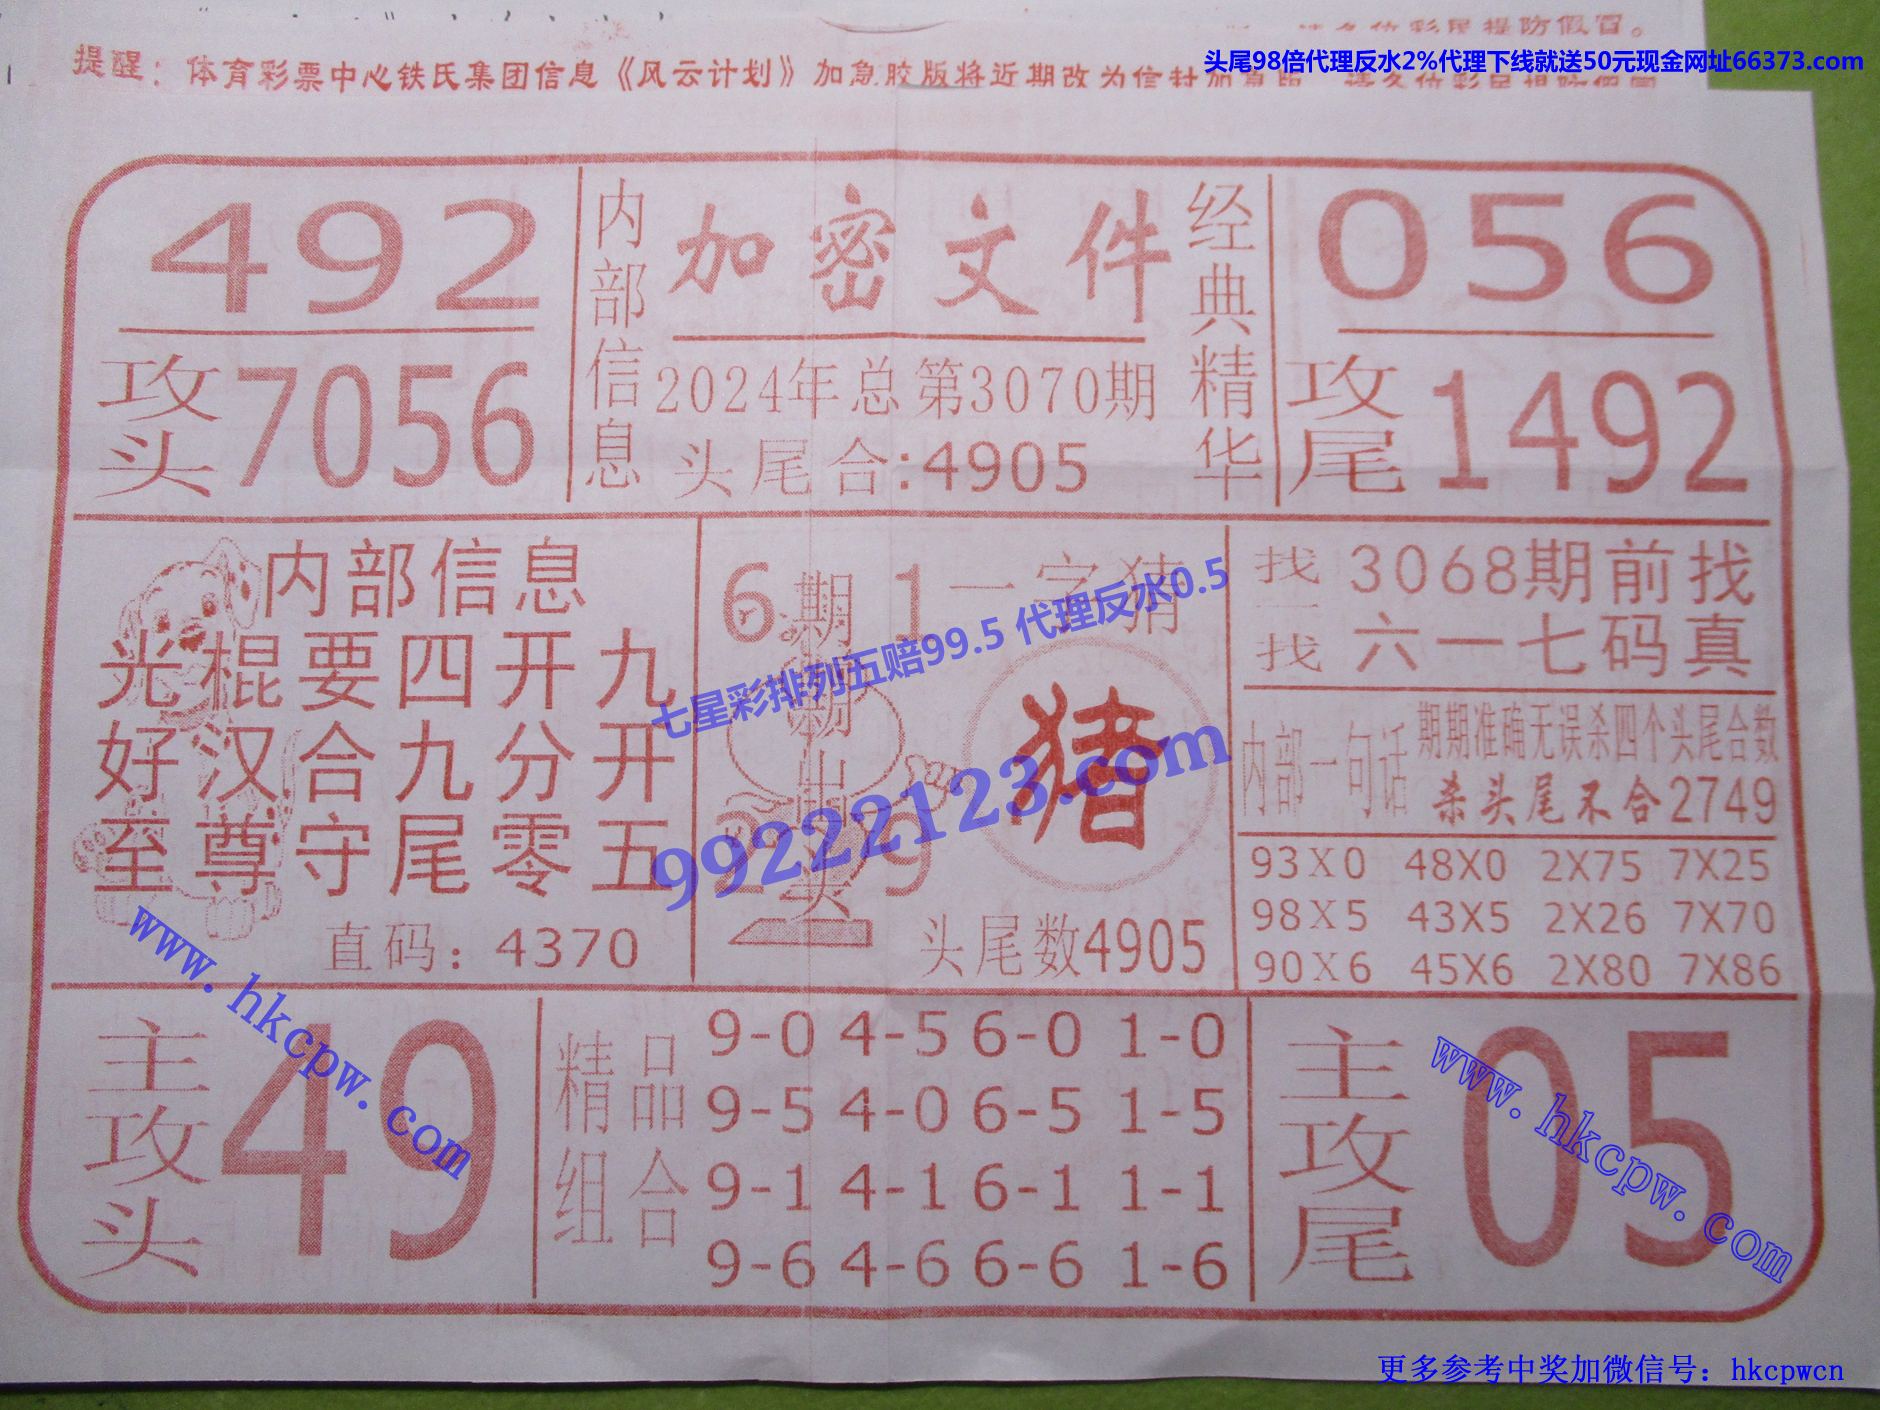 请各位彩民提防假冒。
头尾98倍代理反水2%代理下线就送50元现金网址66373.com
提醒：体育彩票中心铁氏集团信息《风云计划》加急胶版将近期改为信封加急版
492
攻头
7056
内部信息
加密文件
2024年总第3070期
头尾合:4905
经典精华
056
攻尾
1492
内部信息
光棍要四开九
好汉合九分开
至尊守尾零五
直码：4370
6期1一字猪
期期出头
猪
229
头尾数4905
七星彩排列五赔99.5 代理反水0.5
99222123.com
找一找
3068期前找
六一七码真
内部一句话
期期准确无误杀四个头尾合数
杀头尾不合2749
93X0 48X0 2X75 7X25
98X5 43X5 2X26 7X70
90X6 45X6 2X80 7X86
主攻头
49
精品组合
9-0 4-5 6-0 1-0
9-5 4-0 6-5 1-5
9-1 4-1 6-1 1-1
9-6 4-6 6-6 1-6
主攻尾
05
www.hkcpw.com
www.hkcpw.com
更多参考中奖加微信号：hkcpwcn